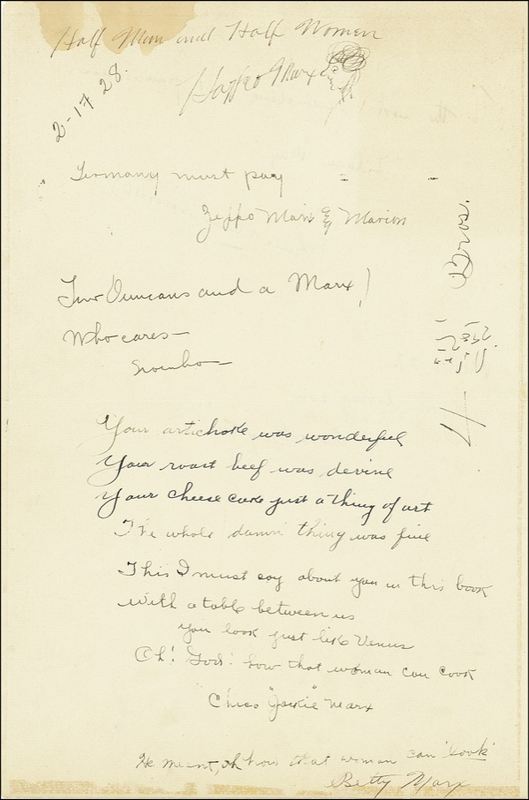 Half Man and Half Women
Harpo Marx
2-17 28.
Germany must pay
Zeppo Marx & Marion
Two Duncans and a Marx!
Who cares—
Your artichoke was wonderful
Your roast beef was devine
Your cheese cake just a thing of art
The whole damn thing was fine
This I must say about you in this book
With a table between us
you look just like Venus
Oh! God! how that woman can cook
Chico Marx
He meant, oh how that woman can "look"
Betty Marx
4
Bros.